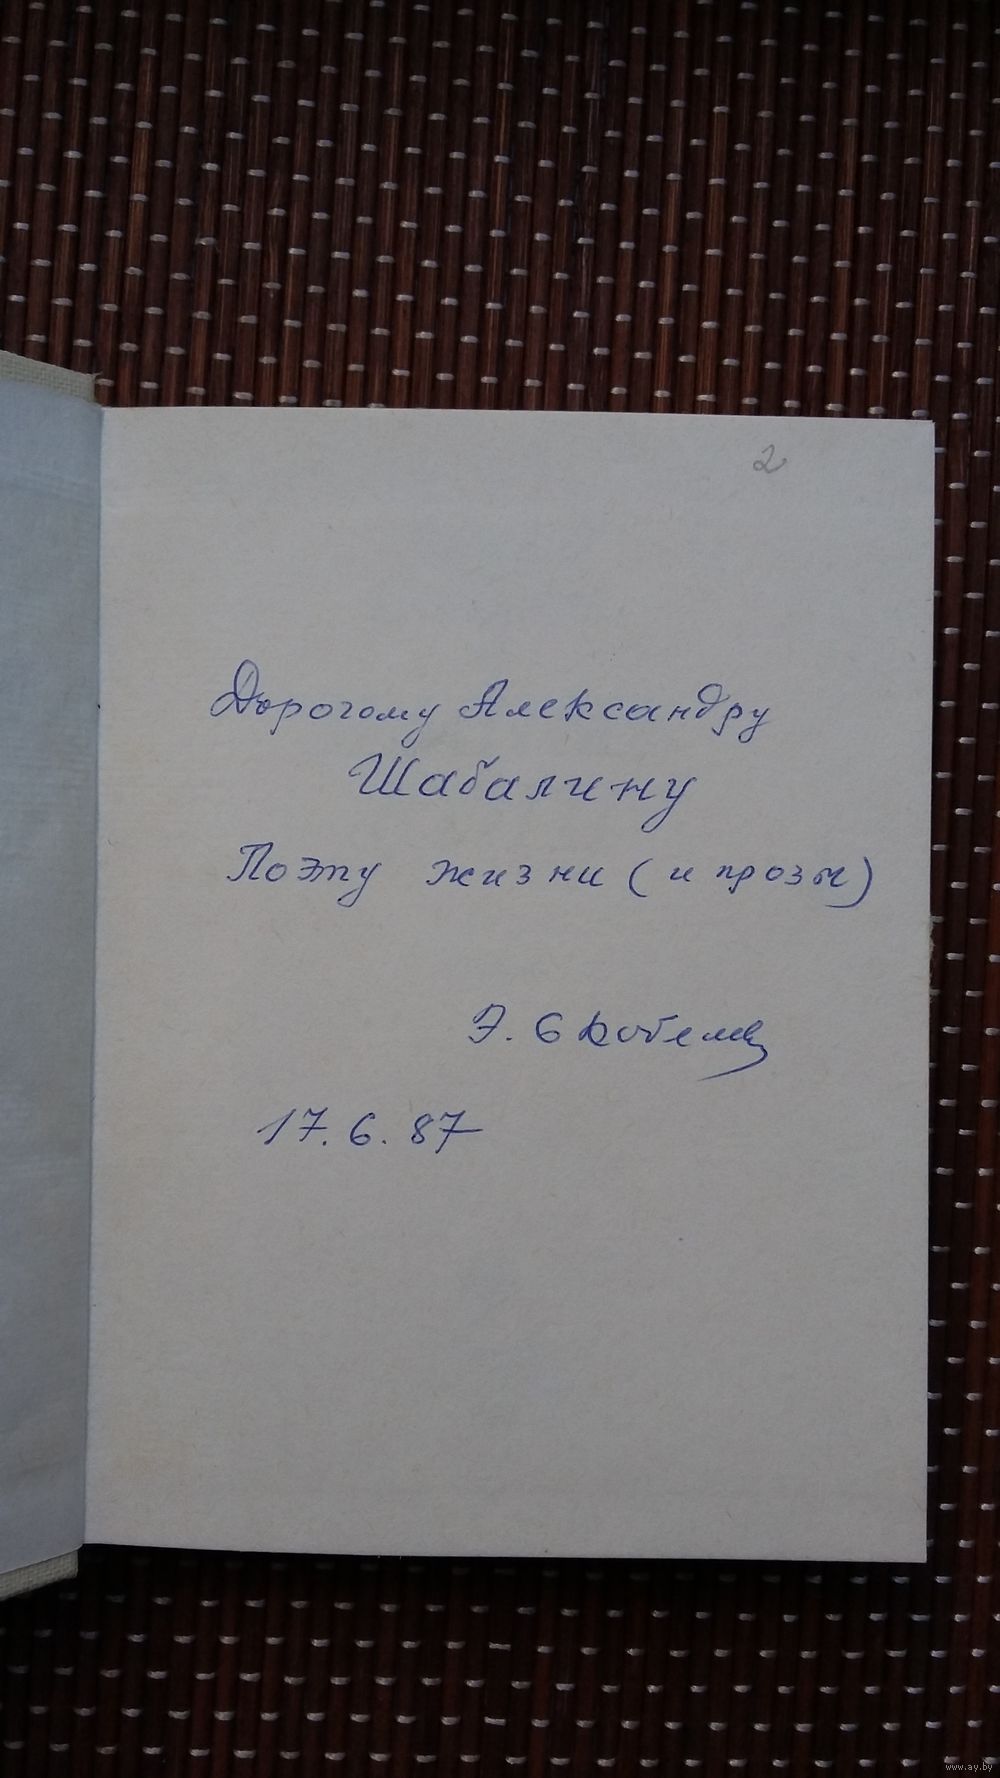 2
Дорогому Александру
Шабалину
Поэту жизни (и прозы)
Э. Скобелев
17.6.87
www.ay.by